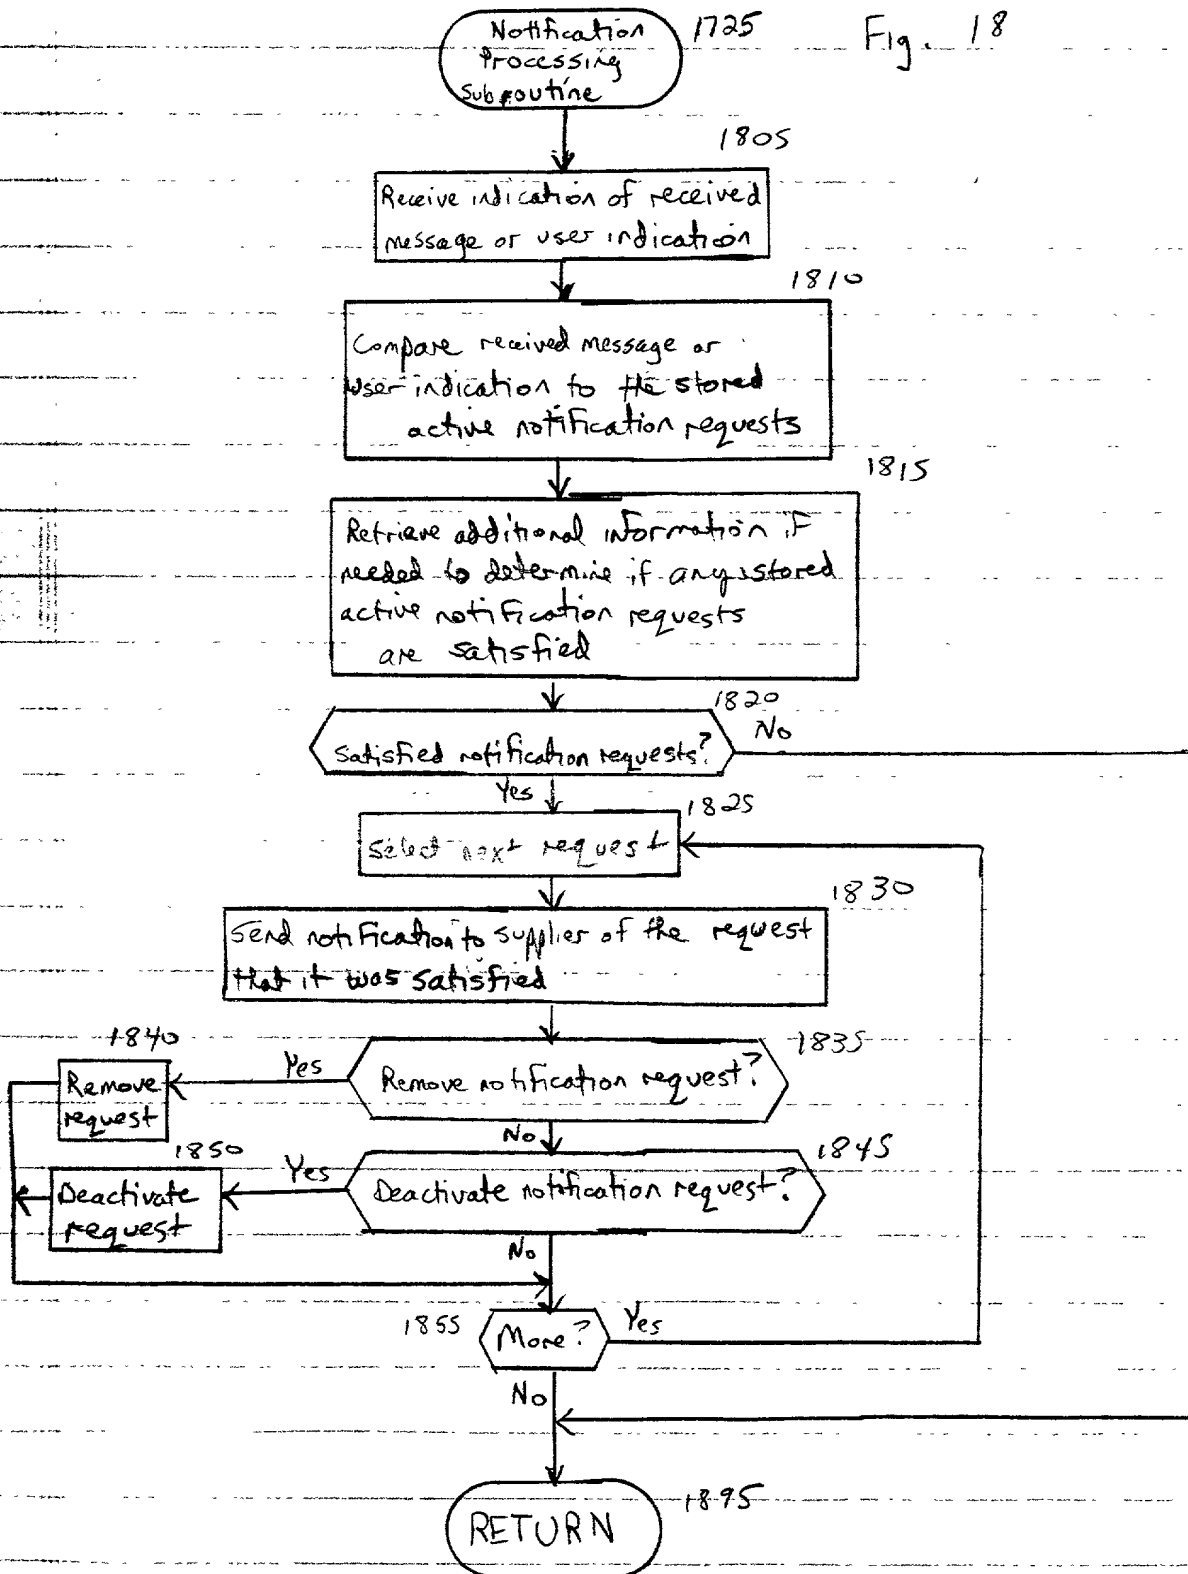 Notification 1725 Fig. 18
Processing
Subroutine
1805
Receive indication of received
message or user indication
1810
Compare received message or
user indication to the stored
active notification requests
1815
Retrieve additional information if
needed to determine if any stored
active notification requests
are satisfied
1820
Satisfied notification requests? No
Yes
1825
Select next request
1830
Send notification to supplier of the request
that it was satisfied
1840
1835
Remove notification request?
Yes
Remove
request
No
1850
1845
Deactivate notification request?
Yes
Deactivate
request
No
1855
More?
Yes
No
1895
RETURN